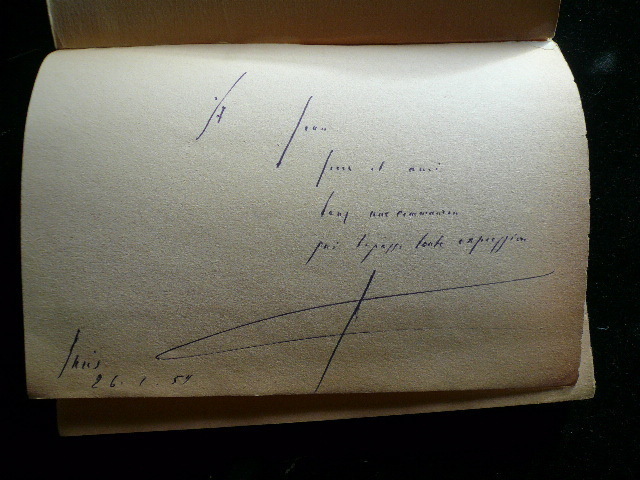 A Jean
frère et ami
dans une communion
qui dépasse toute expression
Paris
26. 1. 54